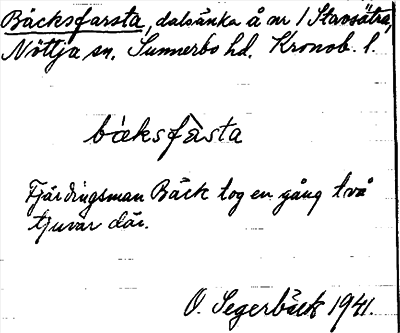 Bäcksfarsta, dalsänka å nr 1 Stavsätra,
Nöttja sn. Sunnerbo hd. Kronob. l.
bæksfàsta
Fjärdingsman Bäck tog en gång två
tjuvar där.
O. Segerbäck 1941.